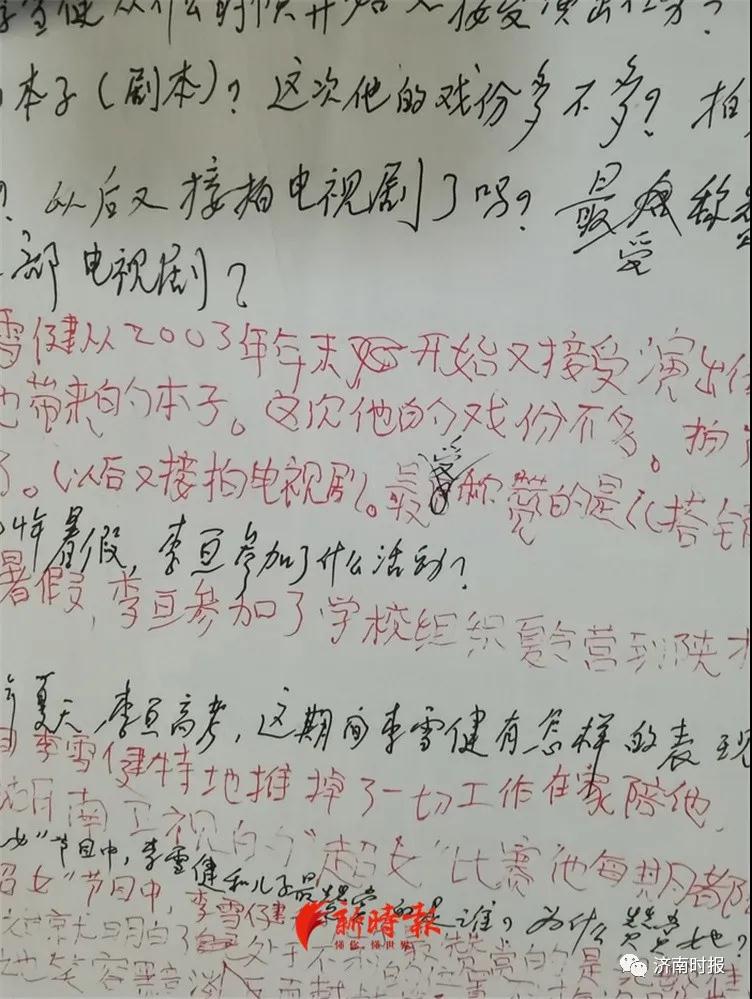 雪健从什么时候开始又接受演出任务？
本子（剧本）？这次他的戏份多不多？拍
？以后又接拍电视剧了吗？最受称赞
部电视剧？
雪健从2003年年末开始又接受演出任
他带来的本子。这次他的戏份不多。拍
了。以后又接拍电视剧。最受称赞的是《搭错
04年暑假，李亘参加了什么活动？
暑假，李亘参加了学校组织夏令营到陕
年夏天，李亘高考，这期间李雪健有怎样的表现
李雪健特地推掉了一切工作在家陪他，
湖南卫视的“超女”比赛他每期都
女”节目中，李雪健和儿子最赞赏的是谁？为什么赞赏她？
超女”节目中，李雪健
最赞赏的是
她笑容
新時報
懂你，懂世界
济南时报